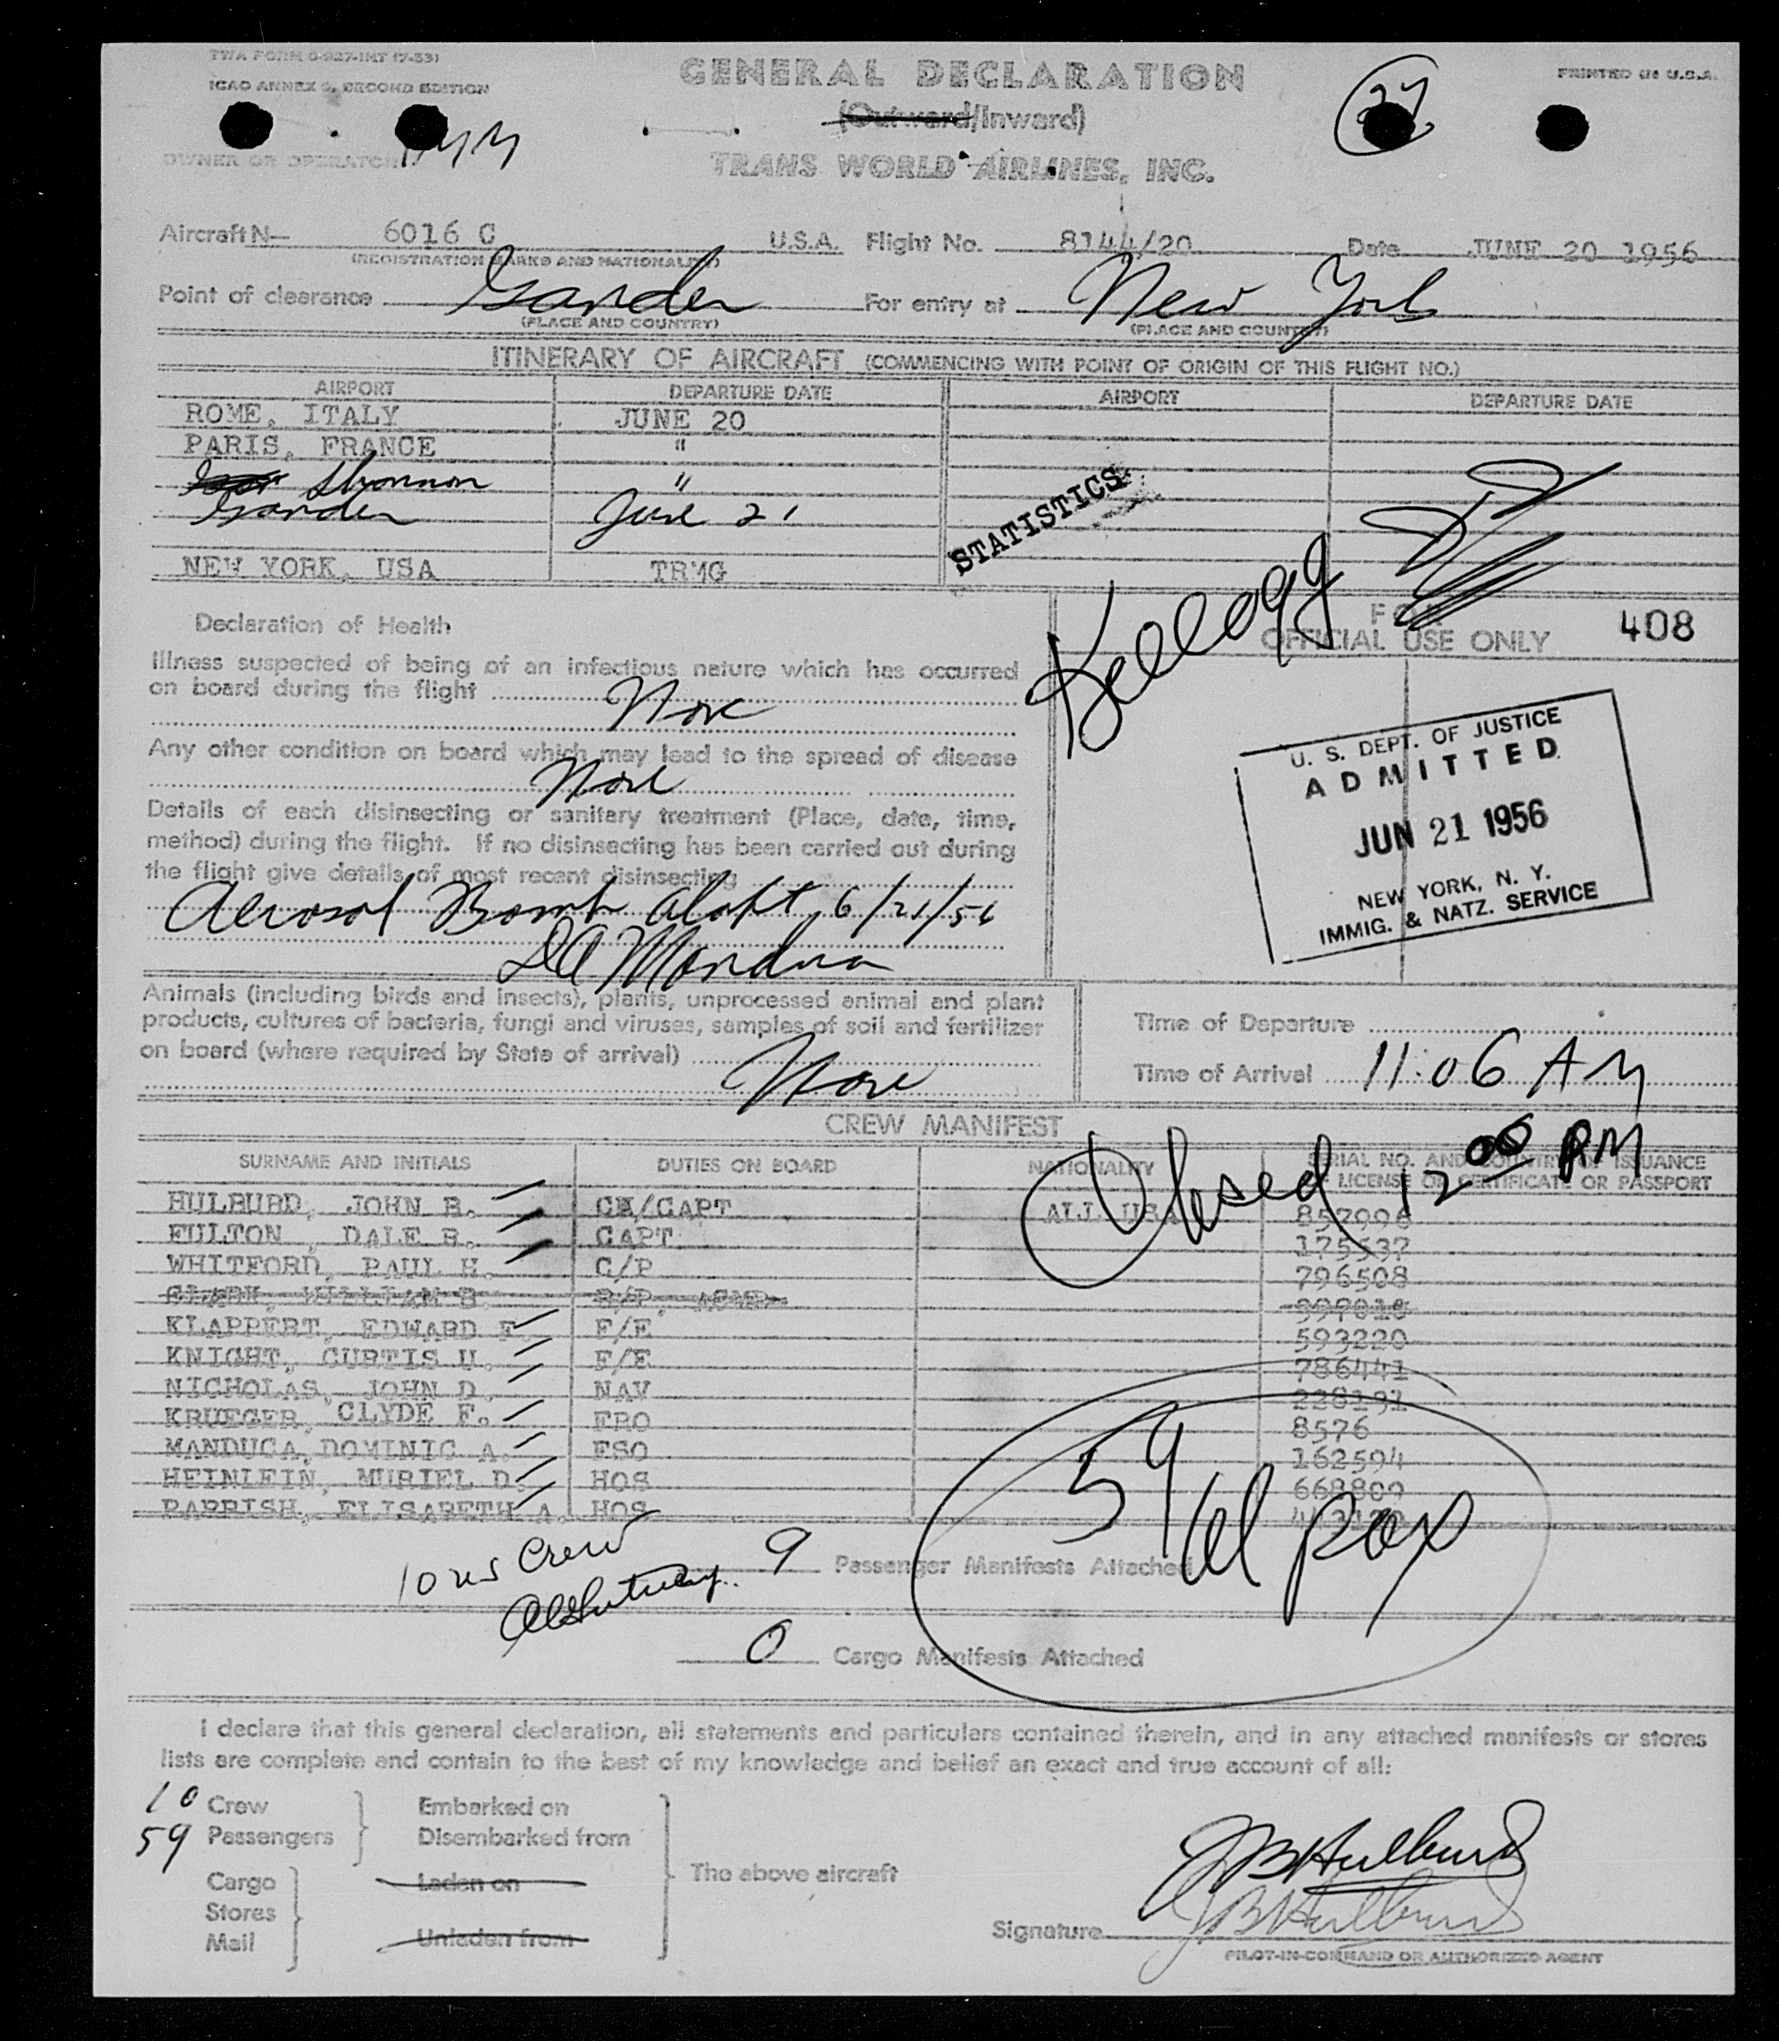 TWA FORM O-927-INT (7-53)
ICAO ANNEX 9, SECOND EDITION
GENERAL DECLARATION
PRINTED IN U.S.A.
(Outward/Inward)
27
OWNER OR OPERATOR
TRANS WORLD AIRLINES, INC.
Aircraft N- 6016 C U.S.A. Flight No. 8144/20 Date JUNE 20 1956
(REGISTRATION MARKS AND NATIONALITY)
Point of clearance Gander For entry at New York
(PLACE AND COUNTRY) (PLACE AND COUNTRY)
ITINERARY OF AIRCRAFT (COMMENCING WITH POINT OF ORIGIN OF THIS FLIGHT NO.)
AIRPORT DEPARTURE DATE AIRPORT DEPARTURE DATE
ROME, ITALY JUNE 20
PARIS, FRANCE "
Shannon "
Gander June 21
STATISTICS
NEW YORK, USA TRMG
Kellogg
Declaration of Health
FOR
OFFICIAL USE ONLY 408
Illness suspected of being of an infectious nature which has occurred
on board during the flight None
Any other condition on board which may lead to the spread of disease
None
Details of each disinsecting or sanitary treatment (Place, date, time,
method) during the flight. If no disinsecting has been carried out during
the flight give details of most recent disinsecting
Aerosol Bomb aloft, 6/21/56
DA Manduca
U. S. DEPT. OF JUSTICE
ADMITTED
JUN 21 1956
NEW YORK, N. Y.
IMMIG. & NATZ. SERVICE
Animals (including birds and insects), plants, unprocessed animal and plant
products, cultures of bacteria, fungi and viruses, samples of soil and fertilizer
on board (where required by State of arrival) None
Time of Departure
Time of Arrival 11:06 AM
Closed 12 00 PM
CREW MANIFEST
SURNAME AND INITIALS DUTIES ON BOARD NATIONALITY SERIAL NO. AND COUNTRY OF ISSUANCE
OF LICENSE OR CERTIFICATE OR PASSPORT
HULBURD, JOHN B. CK/CAPT ALL USA 857996
FULTON, DALE B. CAPT 175537
WHITFORD, PAUL H. C/P 796508
CLARK, WILLIAM B.
KLAPPERT, EDWARD F. F/E 593220
KNIGHT, CURTIS U. F/E 786441
NICHOLAS, JOHN D. NAV 228191
KRUEGER, CLYDE F. FRO 8576
MANDUCA, DOMINIC A. FSO 162594
HEINLEIN, MURIEL D. HOS 668809
PARRISH, ELISABETH A. HOS
10 us Crew
9 Passenger Manifests Attached
59 pax
0 Cargo Manifests Attached
I declare that this general declaration, all statements and particulars contained therein, and in any attached manifests or stores
lists are complete and contain to the best of my knowledge and belief an exact and true account of all:
10 Crew
59 Passengers
Embarked on
Disembarked from
Cargo
Stores
Mail
Laden on
Unladen from
The above aircraft
JBHulburd
Signature JBHulburd
PILOT-IN-COMMAND OR AUTHORIZED AGENT